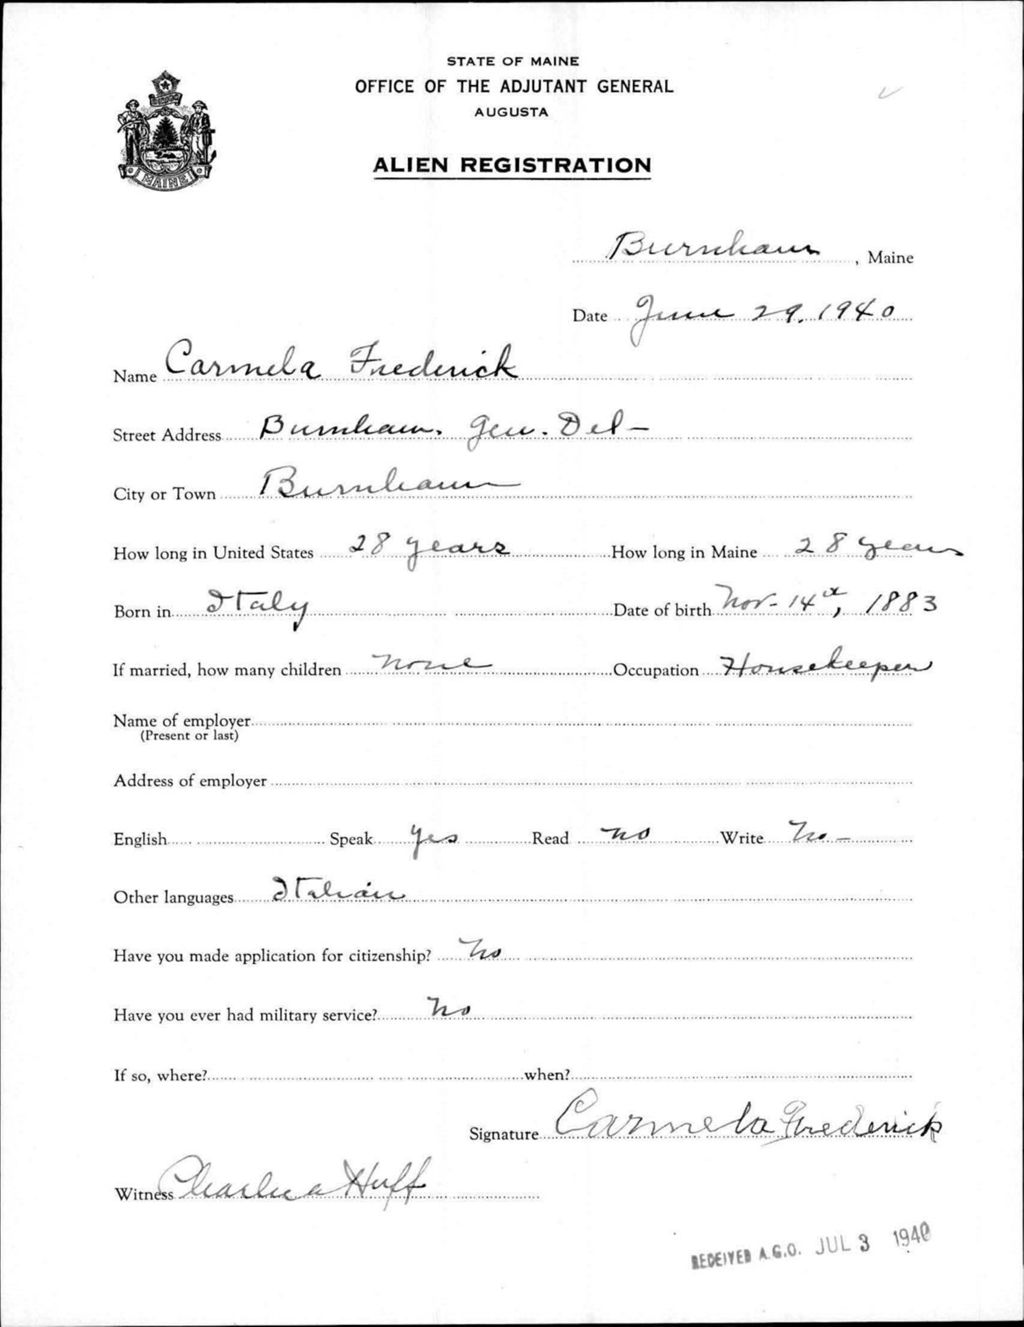 STATE OF MAINE
OFFICE OF THE ADJUTANT GENERAL
AUGUSTA
ALIEN REGISTRATION
MAINE
Burnham, Maine
Date June 29, 1940
Name Carmela Frederick
Street Address Burnham, Gen. Del-
City or Town Burnham
How long in United States 28 years How long in Maine 28 years
Born in Italy Date of birth Nov- 14th, 1883
If married, how many children none Occupation Housekeeper
Name of employer
(Present or last)
Address of employer
English Speak yes Read no Write No-
Other languages Italian
Have you made application for citizenship? No
Have you ever had military service? No
If so, where? when?
Signature Carmela Frederick
Witness Charlie a Huff
RECEIVED A.G.O. JUL 3 1940